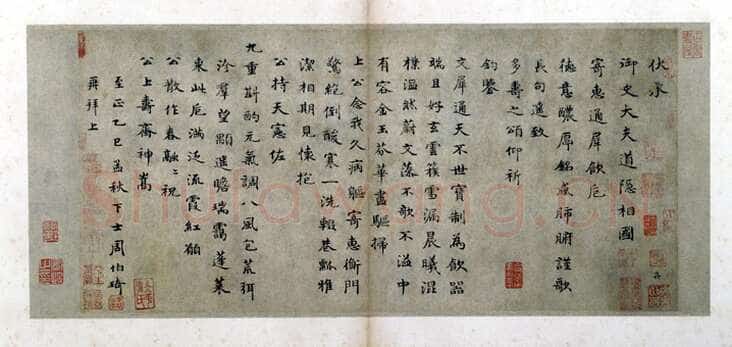 伏承
御史大夫道隱相國
寄惠通犀飲卮
德意醲厚銘感肺腑謹歌
長句進致
多壽之頌仰祈
鈞鑒
文犀通天不世寶制為飲器
端且好玄雲籋雪漏晨曦混
樸溫然蔚文藻不欹不溢中
有容金玉芬華盡驅掃
上公念我久病軀寄惠衡門
驚絕倒酸寒一洗輟巷瓢雅
潔相期見懷抱
公持天憲佐
九重斟酌元氣調八風包荒弭
沴羣望顒進瞻瑞靄蓬萊
東此卮滿泛流霞紅願
公散作春融〻祝
公上壽齊神嵩
至正乙巳孟秋下士周伯琦
再拜上